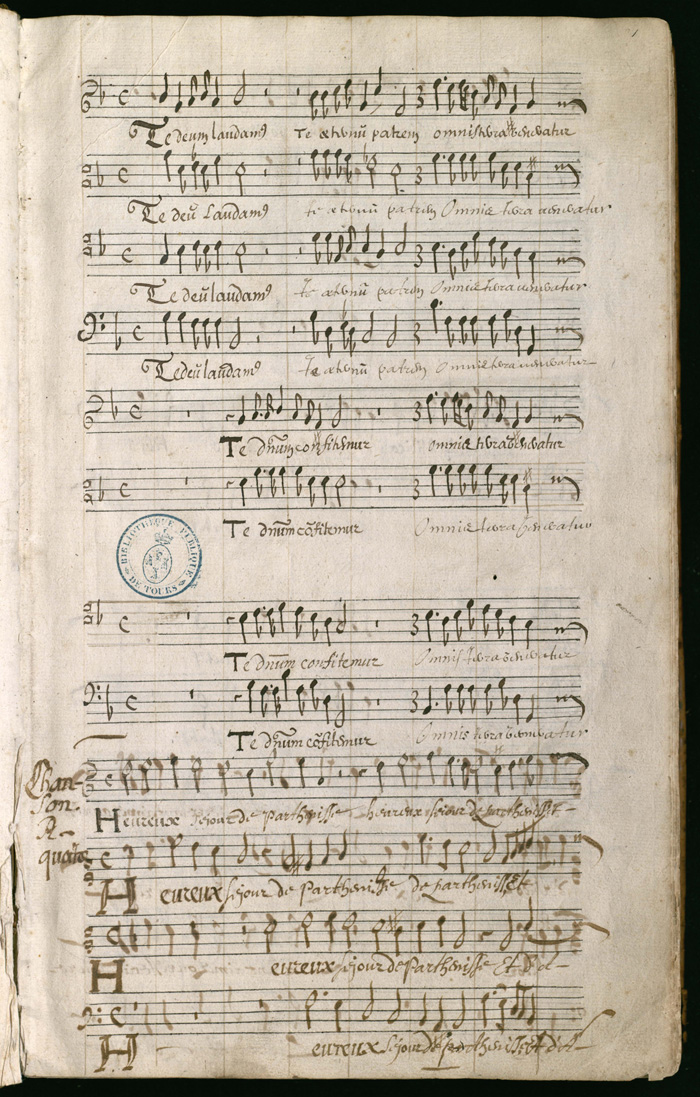 Te deum laudamꝰ Te æternū patrem omnis terra veneratur
Te deū Laudamꝰ te æternū patrem Omnis terra veneratur
Te deū laudamꝰ te æternū patrem Omnis terra veneratur
Te deū laudamꝰ te æternū patrem Omnis terra veneratur
Te dn̄um confitemur omnis terra veneratur
Te dn̄um cōfitemur Omnis terra veneratur
BIBLIOTHEQUE PUBLIQUE DE TOURS
Te dn̄um confitemur Omnis terra veneratur
Te dn̄um cōfitemur Omnis terra veneratur
Chan-
son.
A
quatre
Heureux sejour de parthenisse heureux sejour de parthenisse
Heureux sejour de Parthenisse de parthenisse Et
Heureux sejour de Parthenisse Et d
Heureux sejour de parthenisse Et d